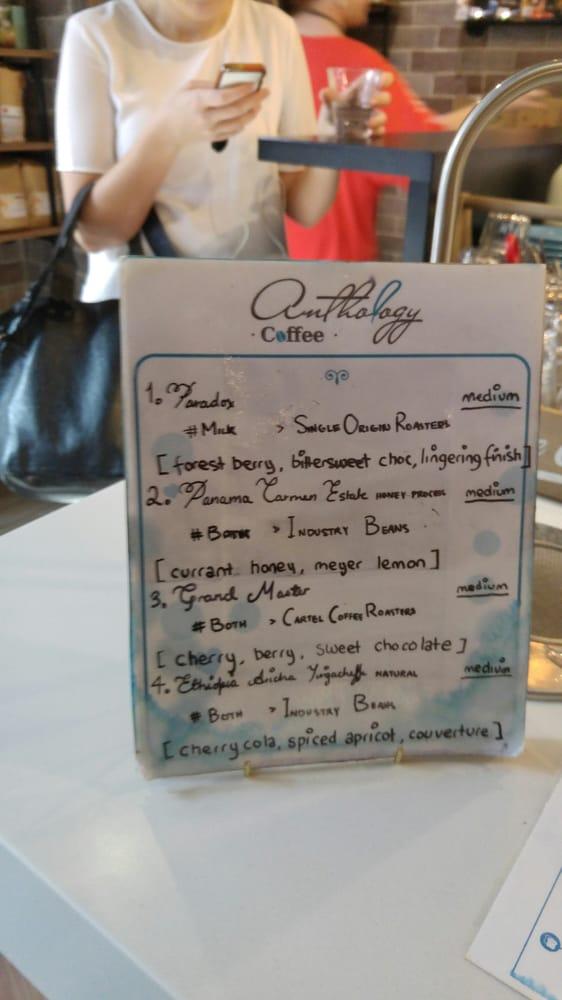 Anthology
· Coffee ·
1. Paradox medium
#Milk > Single Origin Roasters
[forest berry, bittersweet choc, lingering finish]
2. Panama Carmen Estate HONEY PROCESS medium
#Both > Industry Beans
[currant, honey, meyer lemon]
3. Grand Master medium
#Both > Cartel Coffee Roasters
[cherry, berry, sweet chocolate]
4. Ethiopia Aricha Yirgacheffe NATURAL medium
#Both > Industry Beans
[cherry cola, spiced apricot, couverture]